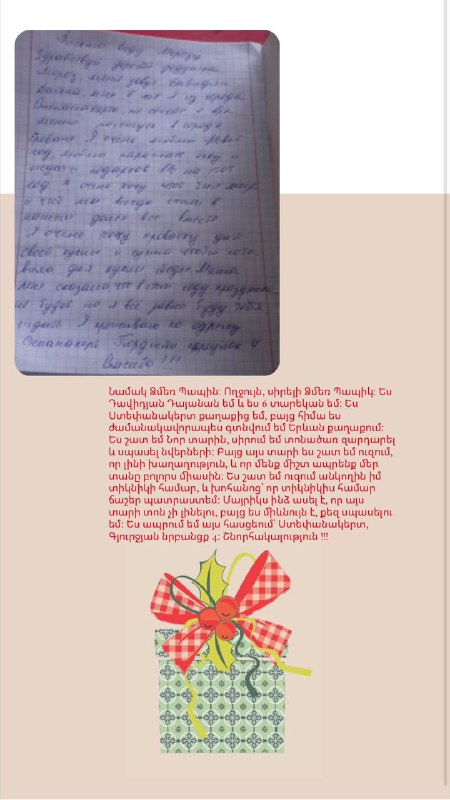 Письмо Деду Морозу
Здравствуй дорогой дедушка
Мороз, меня зовут Давидян
Даяна, мне 6 лет я из города
Степанакерта, но сейчас я вре-
менно нахожусь в городе
Ереване. Я очень люблю Новый
год, люблю наряжать ёлку и
ждать подарков. Но на этот
год я очень хочу чтоб был мир
и чтоб мы всегда жили в
нашем доме все вместе
Я очень хочу кроватку для
своей куклы и кухню чтобы гото-
вила для куклы обеды. Мама
мне сказала что в этом году праздника
не будет но я все равно буду тебя
ждать. Я проживаю по адресу
Степанакерт переулок 4
Спасибо !!!
Նամակ Ձմեռ Պապին: Ողջույն, սիրելի Ձմեռ Պապիկ: Ես
Դավիդյան Դայանան եմ և ես 6 տարեկան եմ: Ես
Ստեփանակերտ քաղաքից եմ, բայց հիմա ես
ժամանակավորապես գտնվում եմ Երևան քաղաքում:
Ես շատ եմ Նոր տարին, սիրում եմ տոնածառ զարդարել
և սպասել նվերների: Բայց այս տարի ես շատ եմ ուզում,
որ լինի խաղաղություն, և որ մենք միշտ ապրենք մեր
տանը բոլորս միասին: Ես շատ եմ ուզում անկողին իմ
տիկնիկի համար, և խոհանոց՝ որ տիկնիկիս համար
ճաշեր պատրաստեմ: Մայրիկս ինձ ասել է, որ այս
տարի տոն չի լինելու, բայց ես միևնույն է, քեզ սպասելու
եմ: Ես ապրում եմ այս հասցեում՝ Ստեփանակերտ,
Գյուրջյան նրբանցք 4: Շնորհակալություն !!!